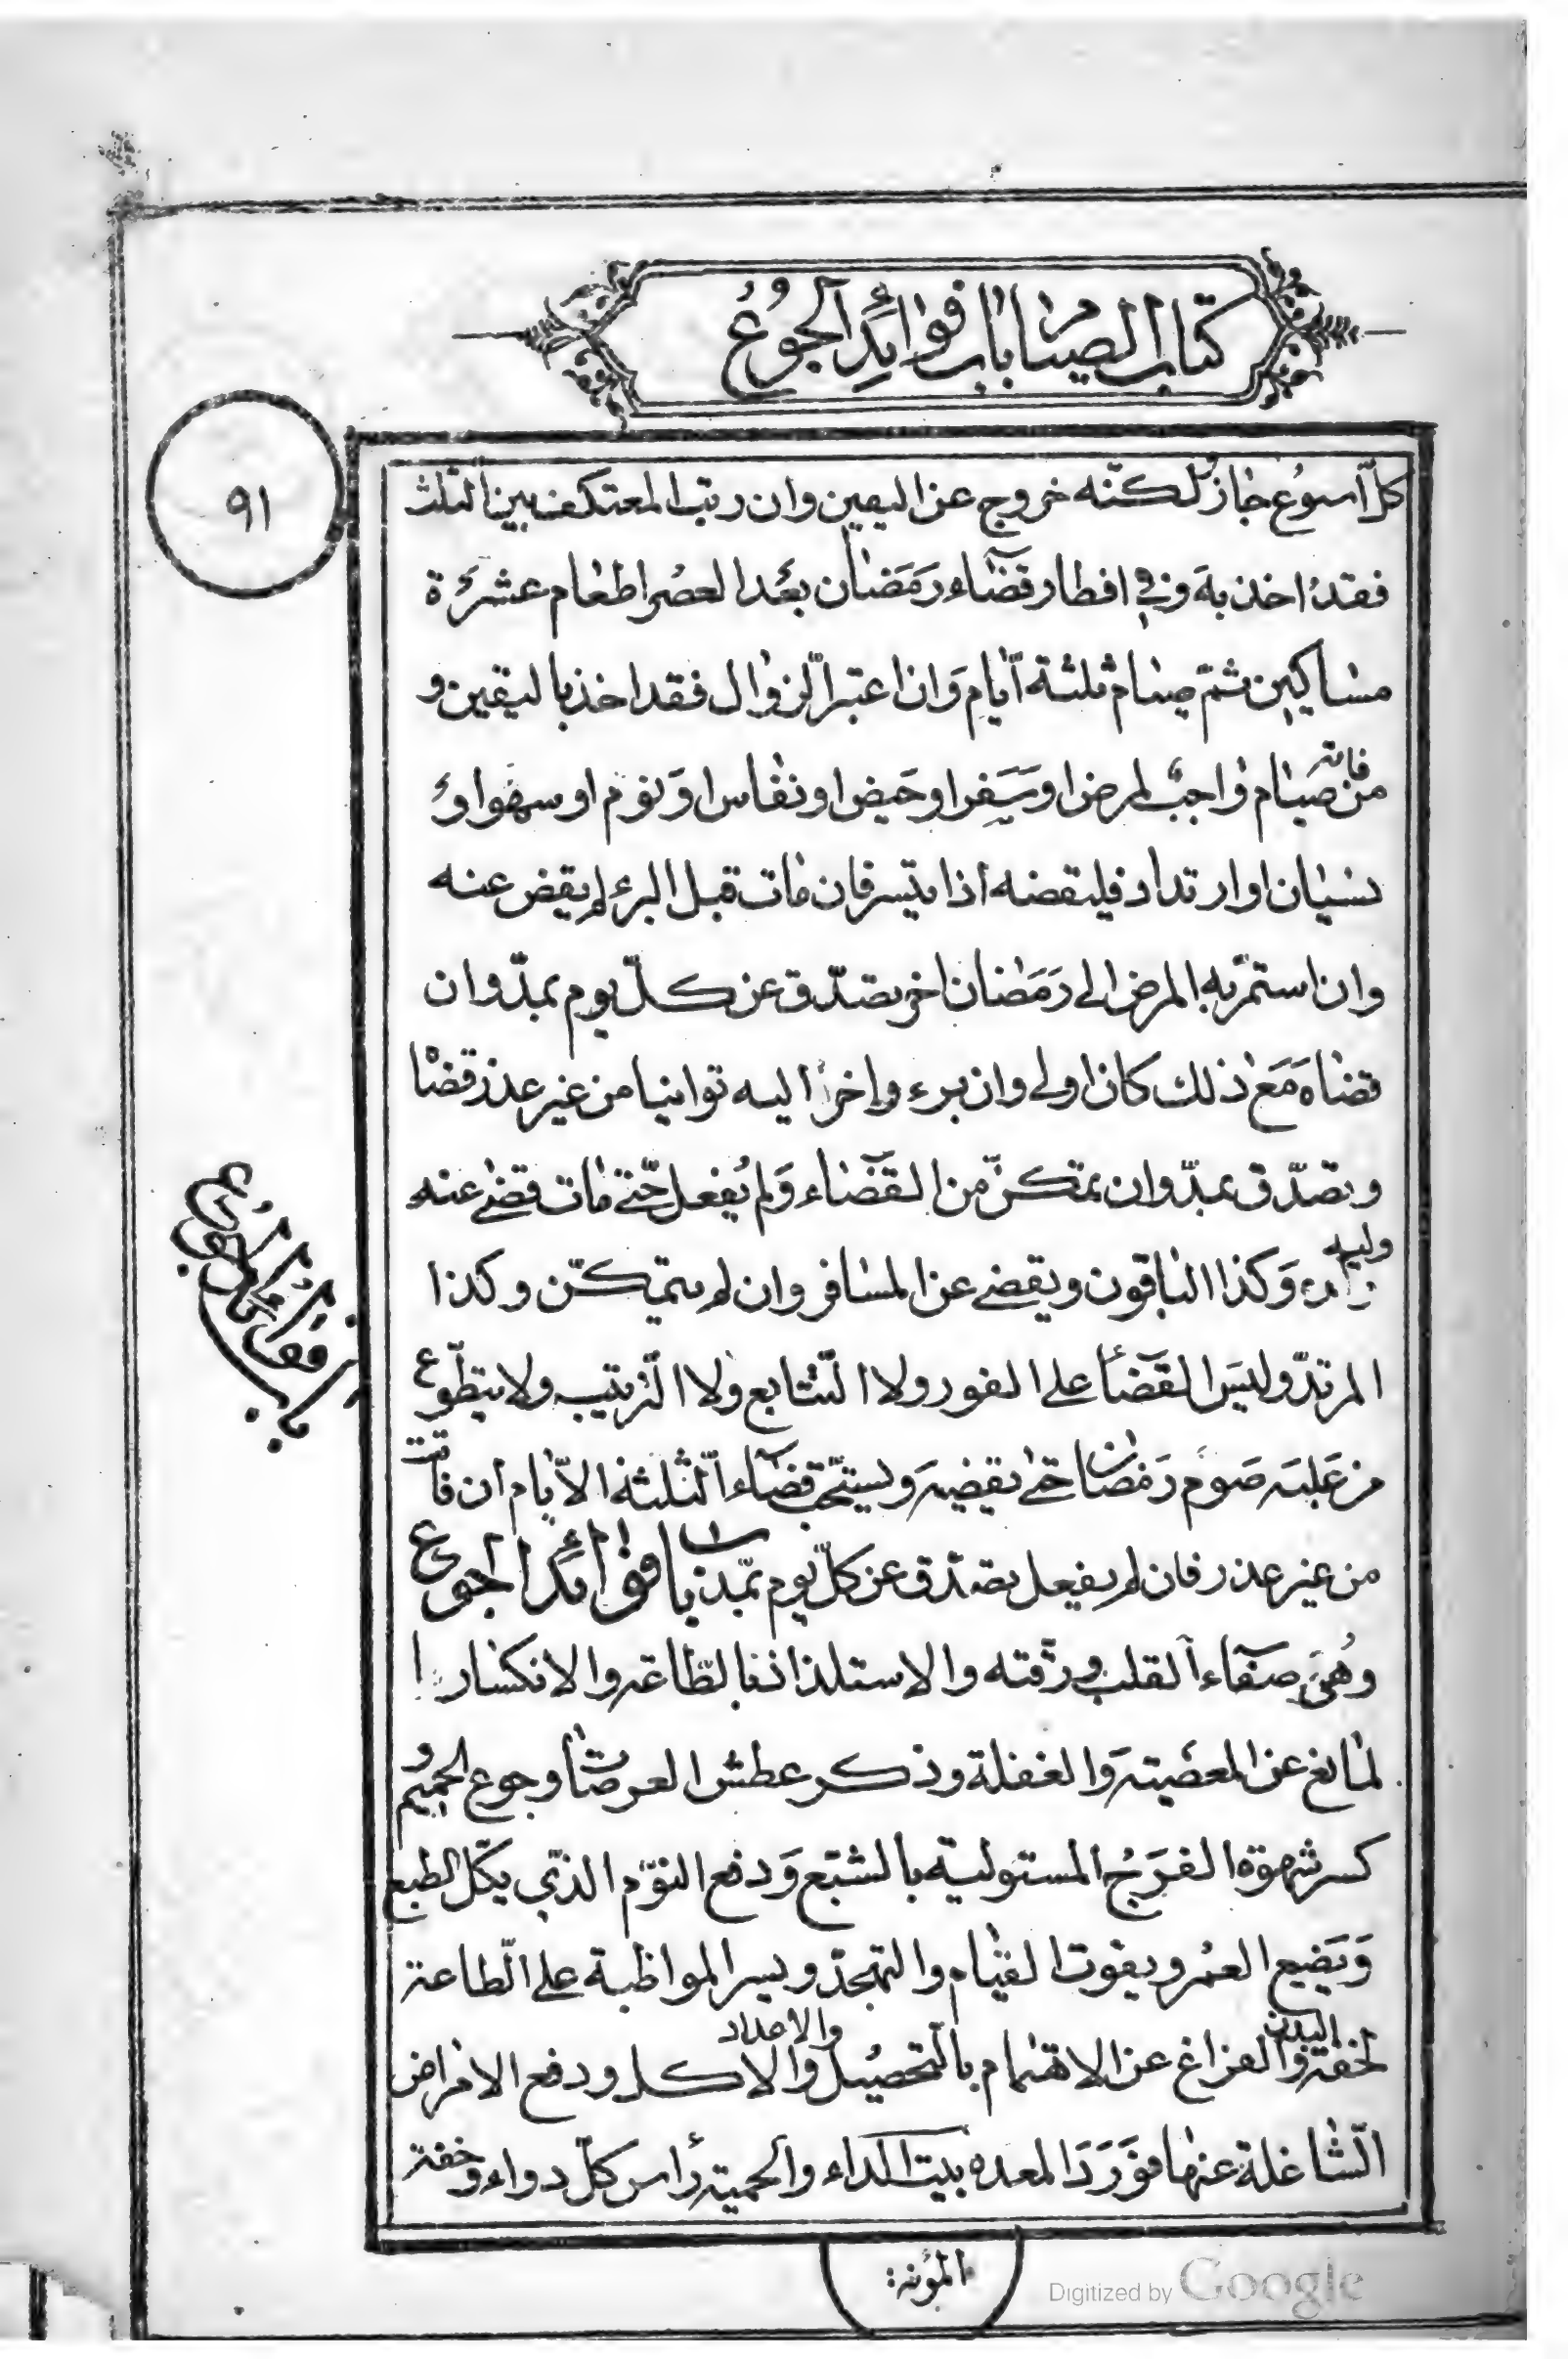 كتاب الصيام باب فوائد الجوع
٩١
كلّ اسبوع جاز لكنّه خروج عن اليقين وان رتب المعتكف بين الثلث
فقد اخذ به وفي افطار قضاء رمضان بعد العصر اطعام عشرة
مساكين ثمّ صيام ثلثة ايام وان اعتبر الزوال فقد اخذ باليقين و
من فاته صيام واجب لمرض او سفر او حيض او نفاس او نوم او سهو او
نسيان او ارتداد فليقضه اذا تيسر فان مات قبل البرء لم يقض عنه
وان استمر به المرض الى رمضان اخر تصدّق عن كلّ يوم بمدّ وان
قضاه مع ذلك كان اولى وان برء واخر اليه توانيا من غير عذر قضا
وتصدّق بمدّ وان تمكّن من القضاء ولم يفعل حتى مات قضى عنه
وليه وكذا الباقون ويقضى عن المسافر وان لم يتمكّن وكذا
المرتدّ وليس القضاء على الفور ولا التتابع ولا الترتيب ولا يتطوّع
من عليه صوم رمضان حتى يقضيه ويستحب قضاء الثلثة الايام ان فاتت
من غير عذر فان لم يفعل تصدّق عن كلّ يوم بمدّ باب فوائد الجوع
وهي صفاء القلب ورقّته والاستلذاذ بالطّاعة والانكسار
المانع عن المعصية والغفلة وذكر عطش العرصات وجوع الجحيم و
كسر شهوة الفرج المستولية بالشبع ودفع النوم الذي يكلّ الطبع
ويضيع العمر ويفوت القيام والتهجّد ويسر المواظبة على الطاعة
لخفة البدن والفراغ عن الاهتمام بالتحصيل والاعداد والاكل ودفع الامراض
الشاغلة عنها فورد المعده بيت الداء والحمية راس كلّ دواء وخفة
المؤنة
باب فوائد الجوع
Digitized by Google